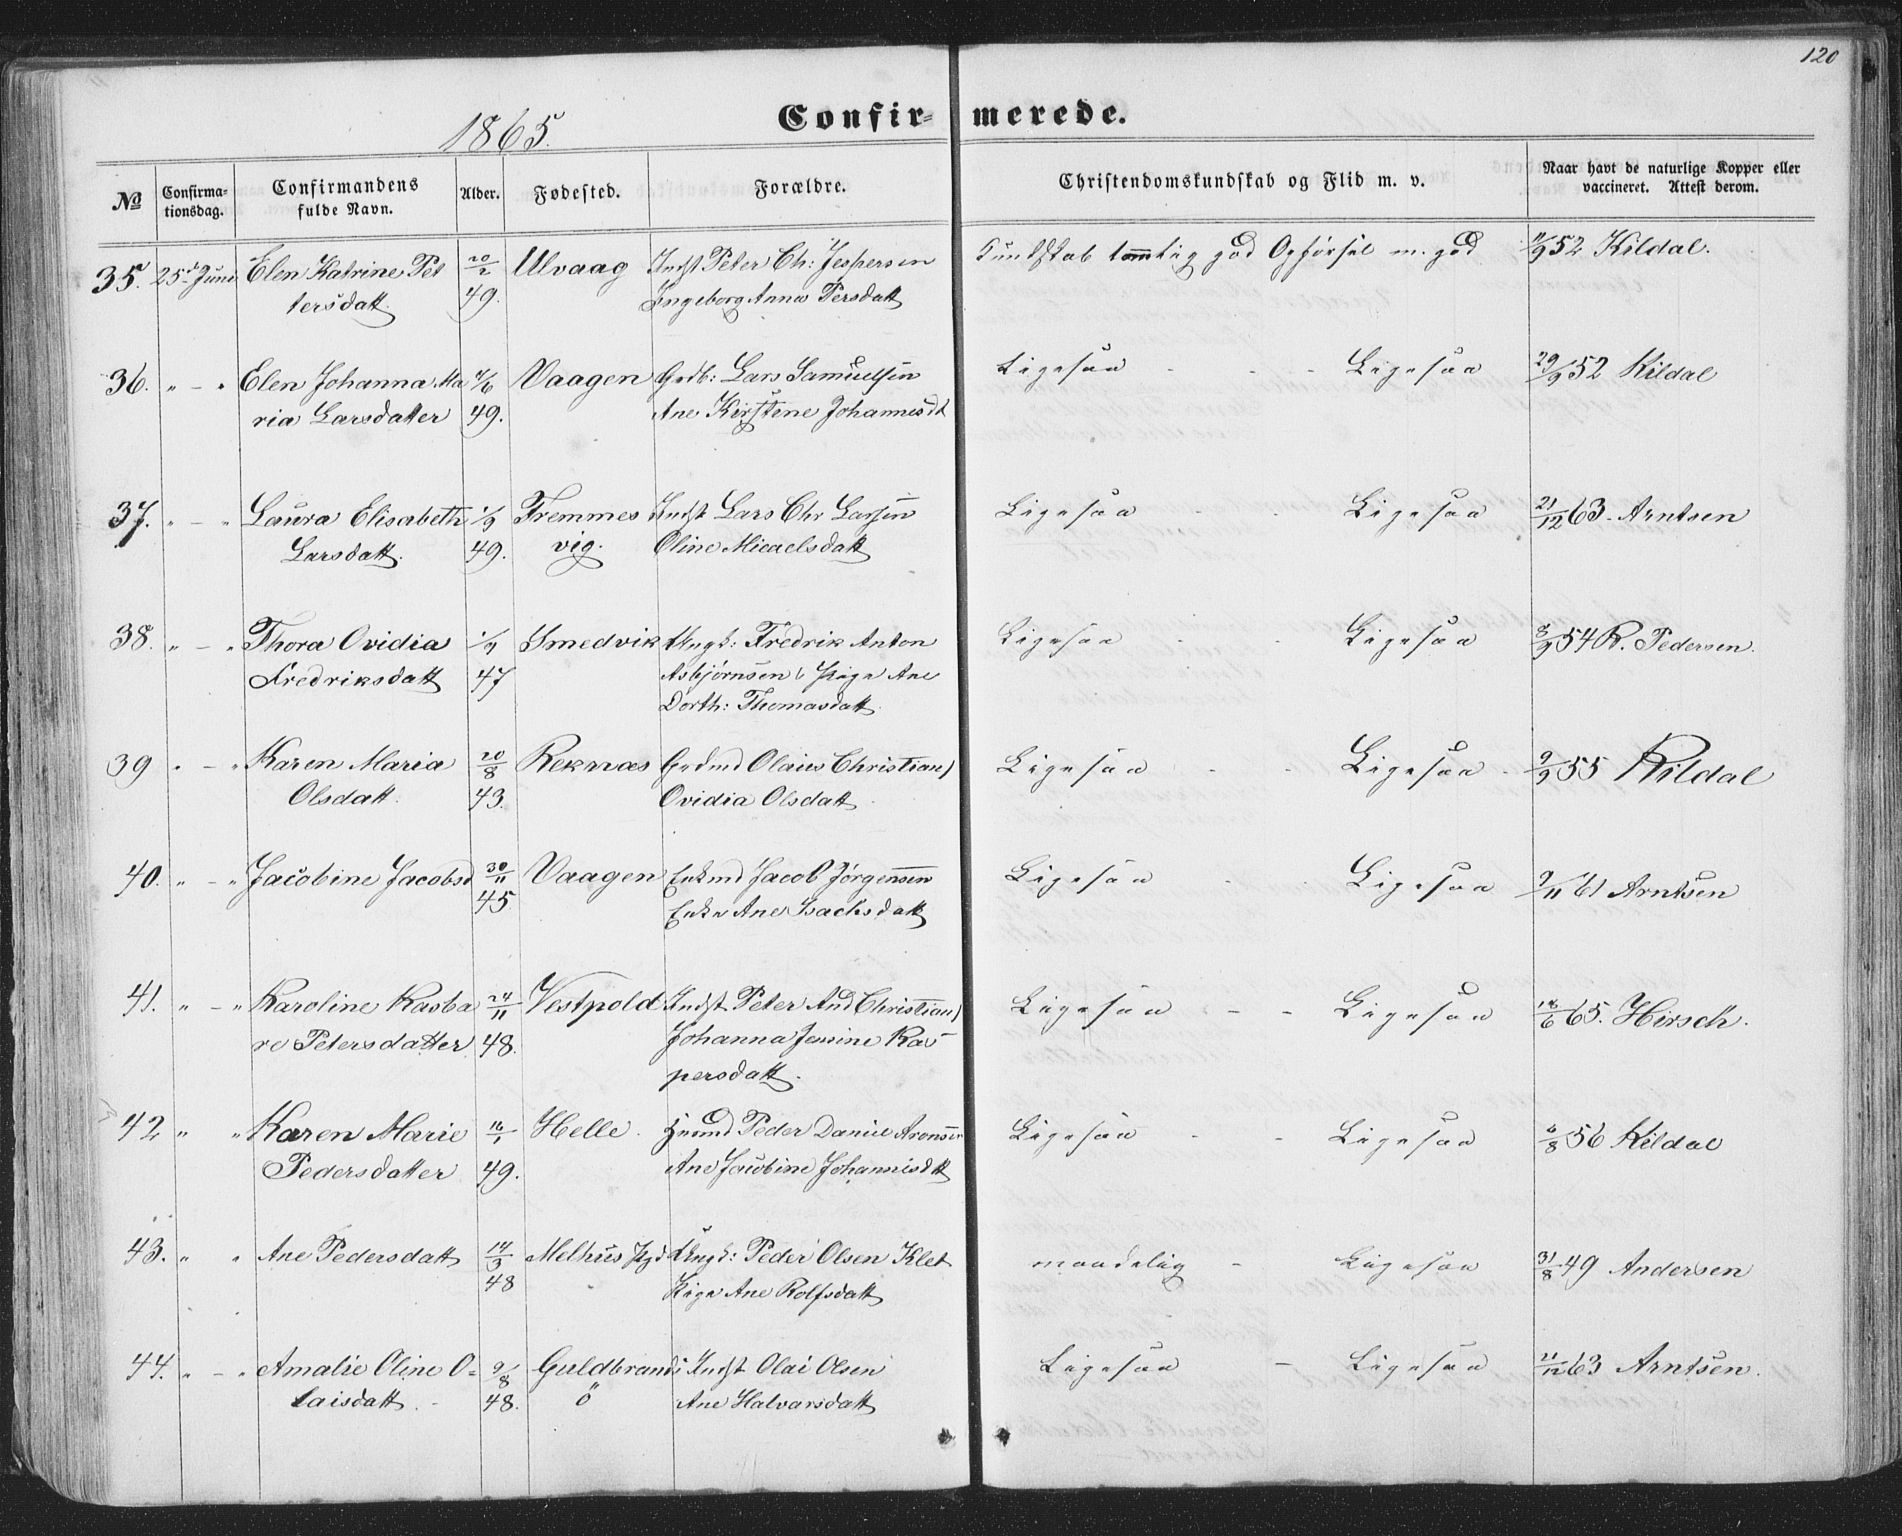 120
1865.
Confir- merede.
No
Confirma-
tionsdag.
Confirmandens
fulde Navn.
Alder.
Fødested.
Forældre.
Christendomskundskab og Flid m. v.
Naar havt de naturlige Kopper eller
vaccineret. Attest derom.
35. 25d Juni Elen Katrine Pet 20/2 Ulvaag Indst Peter Ch: Jespersen Kundskab temmelig god Opførsel m. god 11/9 52 Kildal.
tersdatt 49. Ingeborg Anna Persdatt
36. " - " Elen Johanna Ma /6 Vaagen Grdb: Lars Samuelsen Ligesaa - - - Ligesaa 29/9 52 Kildal
ria Larsdatter 49. Ane Kirstene Johannesdt
37. " - " Laura Elisabeth 1/9 Fremmes Indst Lars Chr Larsen Ligesaa - - Ligesaa 21/12 63. Arntsen
Larsdatt. 49. vig. Oline Micaelsdatt
38. " - " Thora Ovidia 1/9 Smedvik Ungk: Fredrik Anton Ligesaa - - Ligesaa 8/9 54 R. Pedersen.
Fredriksdatt 47 Asbjørnsen & Pige Ane
Dorth: Thomasdatt
39 " - " Karen Maria 20/8 Reknæs Grdmd Olaus Christians/ Ligesaa - - Ligesaa - 9/9 55 Kildal
Olsdatt. 43. Ovidia Olsdatt
40. " - " Jacobine Jacobsd 30/11 Vaagen Enkmd Jacob Jørgensen Ligesaa - - Ligesaa 9/11 61 Arntsen
45. Enke Ane Isachsdatt
41. " - " Karoline Kasba 24/11 Vestpold Indst Peter And Christians/ Ligesaa - - Ligesaa 18/6 65. Hirsch.
re Petersdatter 48. Johanna Jensine Kas-
persdatt.
42 " " Karen Marie 16/1 Helle. Huusmd Peder Daniel Aronsen Ligesaa - - Ligesaa 6/8 56 Kildal
Pedersdatter 49. Ane Jacobine Johannisdtt
43. " " Ane Pedersdatt 14/3 Melhus Pgd Ungk: Peder Olsen Klet maadelig - Ligesaa 31/8 49 Andersen
48 Pige Ane Rolfsdatt
44. " - " Amalie Oline O- 9/8 Guldbrands Indst Olai Olsen Ligesaa - Ligesaa 11/12 63 Arntsen.
laisdatt. - 48. ö Ane Halvarsdatt